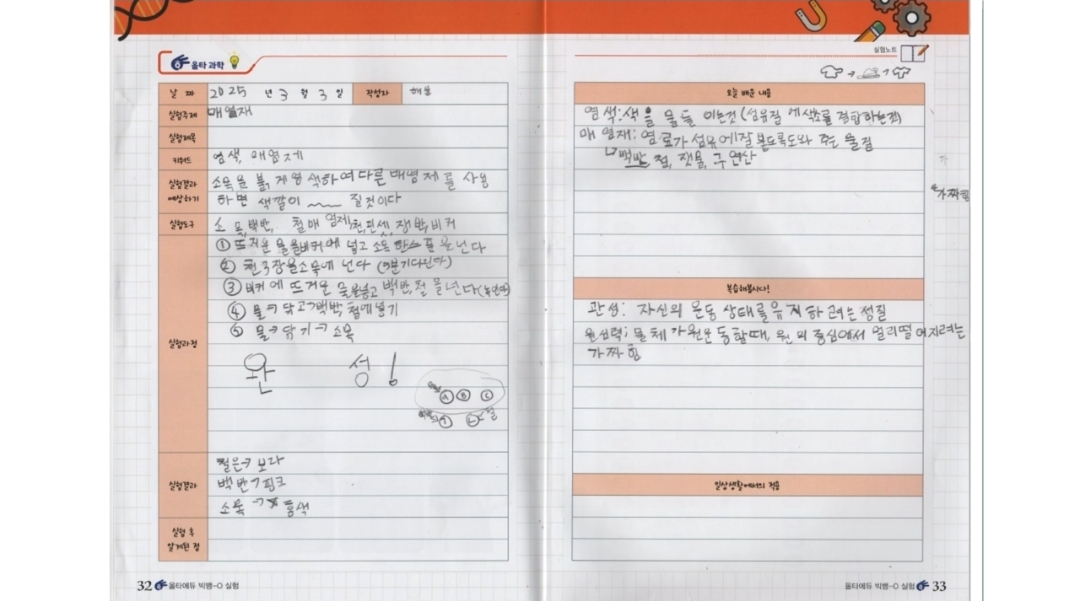 울타 과학
날 짜 2025 년 3 월 3 일 작성자 해울
실험주제 매염재
실험제목
키워드 염색, 매염제
실험결과 예상하기 소목을 붉게 염색하여 다른 매염제를 사용
하면 색깔이 질것이다
실험도구 소목, 백반, 철매염제, 천, 핀셋, 쟁반, 비커
실험과정
① 뜨거운 물을 비커에 넣고 소목 을 넌다
② 천 3장을 소목에 넌다 (9분기다린다)
③ 비커에 뜨거운 물을넣고 백반, 철 을 넌다
④ 물→ 닦고→백반, 철에넣기
⑤ 물→ 닦기→ 소목
완 성!
A B C
철
실험결과
철은→ 보라
백반→핑크
소목 → 홍색
실험 후 알게된 점
32 울타에듀 빅뱅-O 실험
실험노트
오늘 배운 내용
염색:색을 물들이는것(섬유질에 색소를 결합하는것)
매염재: 염료가 섬유에 잘 붙도록도와 주는 물질
백반, 철, 잿물, 구연산
가짜힘
복습해봅시다!
관성: 자신의 운동 상태를 유지하려는 성질
원심력; 물체가 원운동할때, 원의 중심에서 멀리떨어지려는
가짜힘
일상생활에서의 적용
울타에듀 빅뱅-O 실험 33